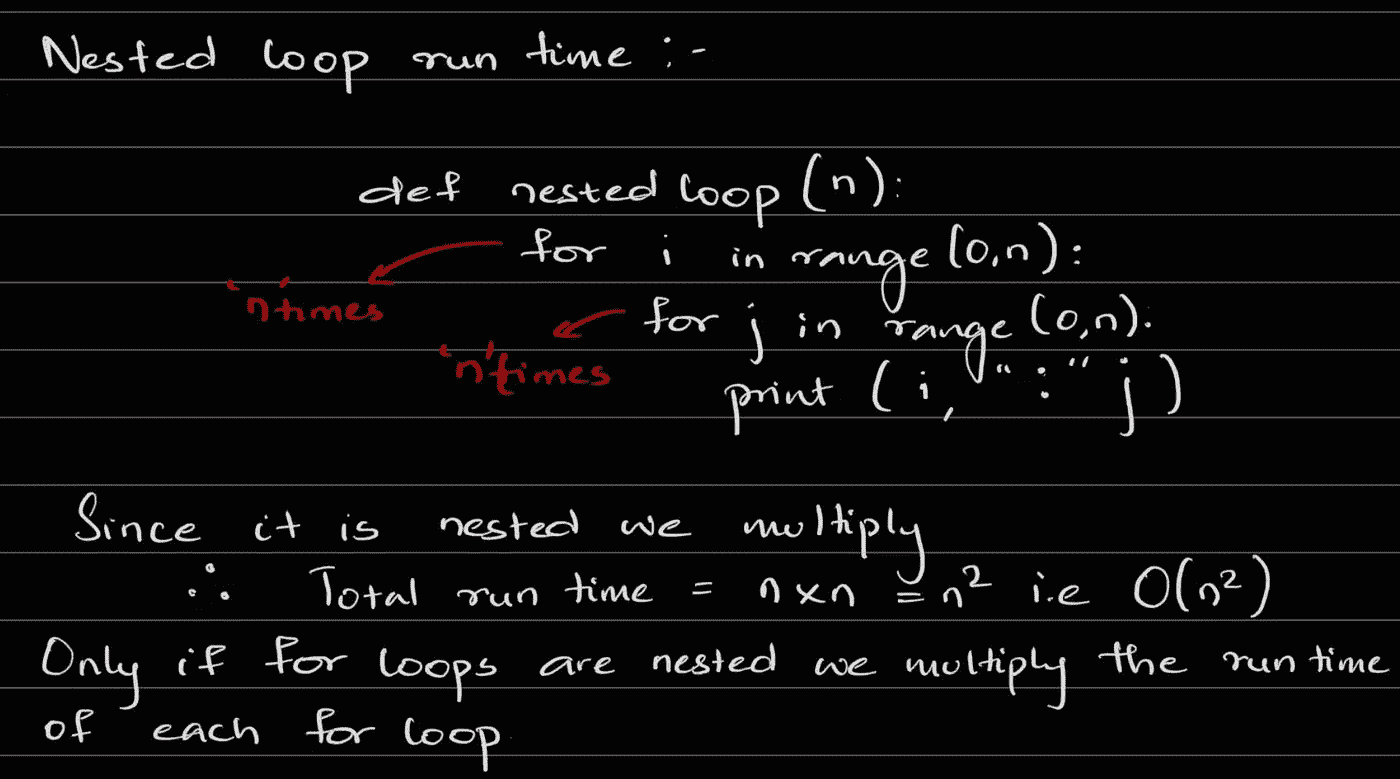 Nested loop run time :-
def nested loop (n):
for i in range (0,n):
'n' times
for j in range (0,n).
'n' times
print (i, " : " j)
Since it is nested we multiply
∴ Total run time = n x n = n² i.e O(n²)
Only if for loops are nested we multiply the run time
of each for loop